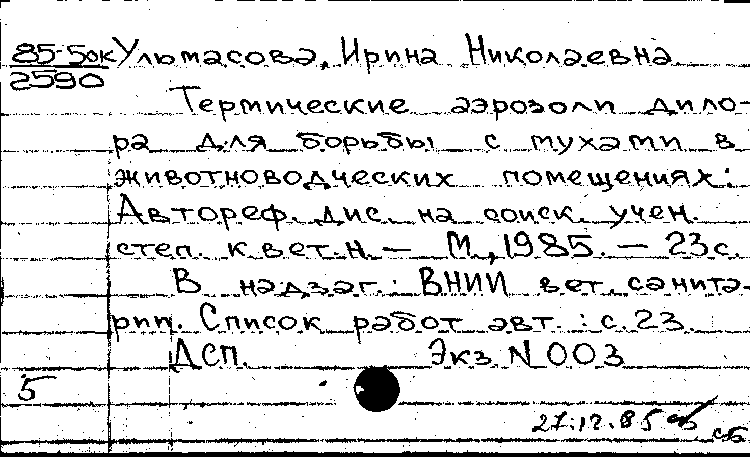 85-5ок Ульмасова, Ирина Николаевна
2590
Термические аэрозоли дило-
ра для борьбы с мухами в
животноводческих помещениях:
Автореф. дис. на соиск. учен.
степ. к.вет.н. — М., 1985. — 23 с.
В надзаг.: ВНИИ вет. санита-
рии. Список работ авт.: с. 23.
ДСП. Экз. N 003
5
27.12.85
сб